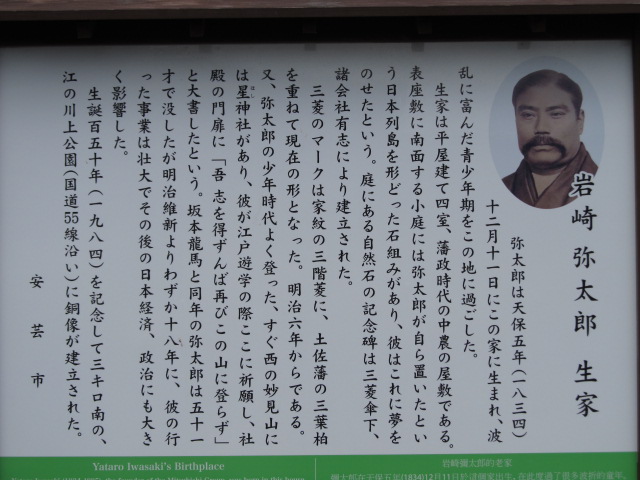 岩崎 弥太郎 生家
弥太郎は天保五年(一八三四)
十二月十一日にこの家に生まれ、波
乱に富んだ青少年期をこの地に過ごした。
生家は平屋建て四室、藩政時代の中農の屋敷である。
表座敷に南面する小庭には弥太郎が自ら置いたとい
う日本列島を形どった石組みがあり、彼はこれに夢を
のせたという。庭にある自然石の記念碑は三菱傘下、
諸会社有志により建立された。
三菱のマークは家紋の三階菱に、土佐藩の三葉柏
を重ねて現在の形となった。明治六年からである。
又、弥太郎の少年時代よく登った、すぐ西の妙見山に
は星神社があり、彼が江戸遊学の際ここに祈願し、社
殿の門扉に「吾 志を得ずんば再びこの山に登らず」
と大書したという。坂本龍馬と同年の弥太郎は五十一
才で没したが明治維新よりわずか十八年に、彼の行
った事業は壮大でその後の日本経済、政治にも大き
く影響した。
生誕百五十年(一九八四)を記念して三キロ南の、
江の川上公園(国道55線沿い)に銅像が建立された。
安芸市
Yataro Iwasaki's Birthplace
岩崎彌太郎的老家